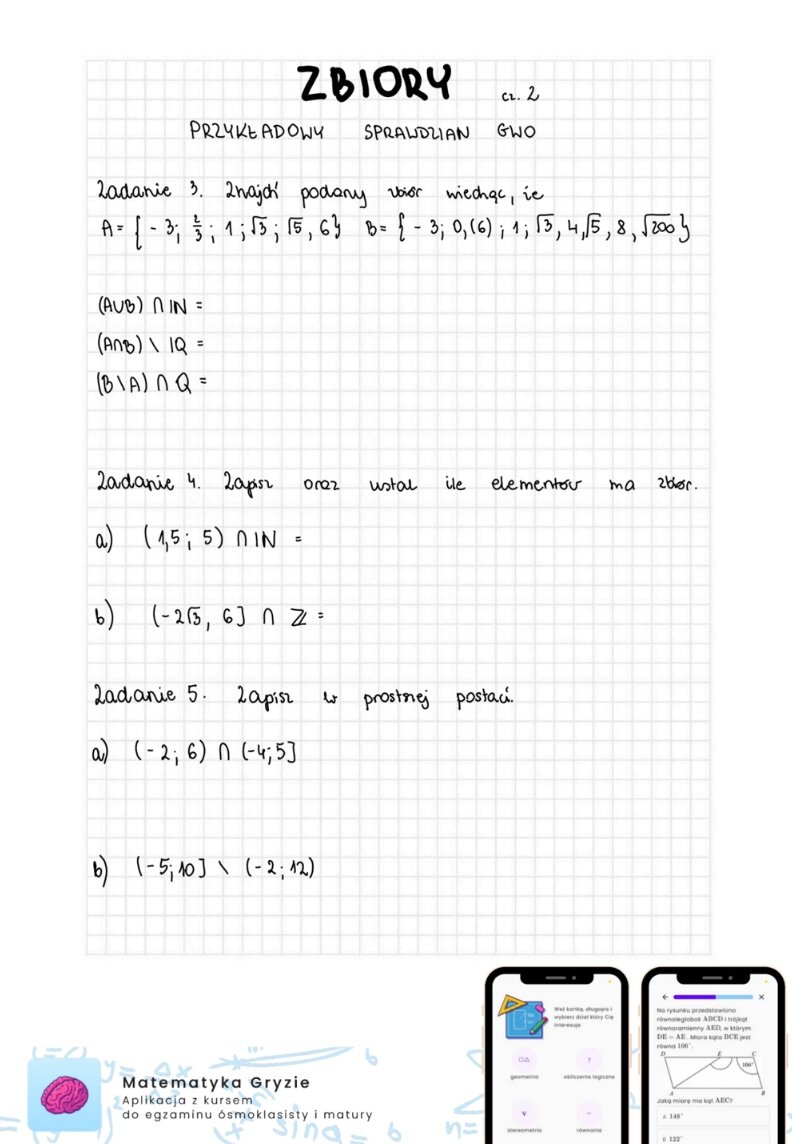 ZBIORY cz. 2
PRZYKŁADOWY SPRAWDZIAN GWO
Zadanie 3. Znajdź podany zbiór wiedząc, że
A = { - 3; 2/3; 1; √3; √5, 6} B = { - 3; 0,(6); 1; √3, 4,√5, 8, √200}
(A∪B) ∩ ℕ =
(A∩B) \ ℚ =
(B\A) ∩ Q =
Zadanie 4. Zapisz oraz ustal ile elementów ma zbiór.
a) (1,5; 5) ∩ ℕ =
b) (-2√3, 6] ∩ ℤ =
Zadanie 5. Zapisz w prostszej postaci.
a) (-2; 6) ∩ (-4; 5]
b) (-5; 10] \ (-2; 12)
Matematyka Gryzie
Aplikacja z kursem
do egzaminu ósmoklasisty i matury
Weź kartkę, długopis i
wybierz dział który Cię
interesuje
geometria
obliczenia logiczne
stereometria
równania
Na rysunku przedstawiono
równoległobok ABCD i trójkąt
równoramienny AED, w którym
DE = AE. Miara kąta BCE jest
równa 106°.
D E C
106°
A B
Jaką miarę ma kąt AEC?
A 148°
B 122°